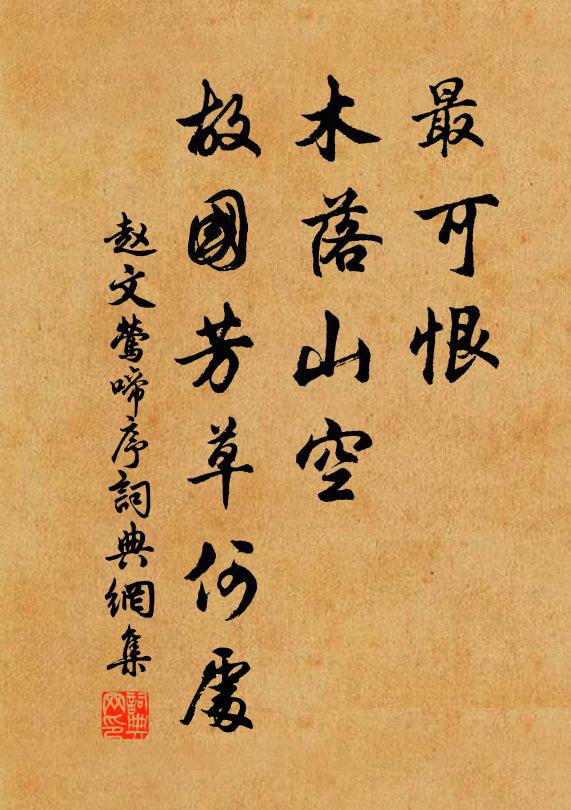 最可恨
木落山空
故國芳草何處
赵文鶯啼序詞典網集
詞典
网印